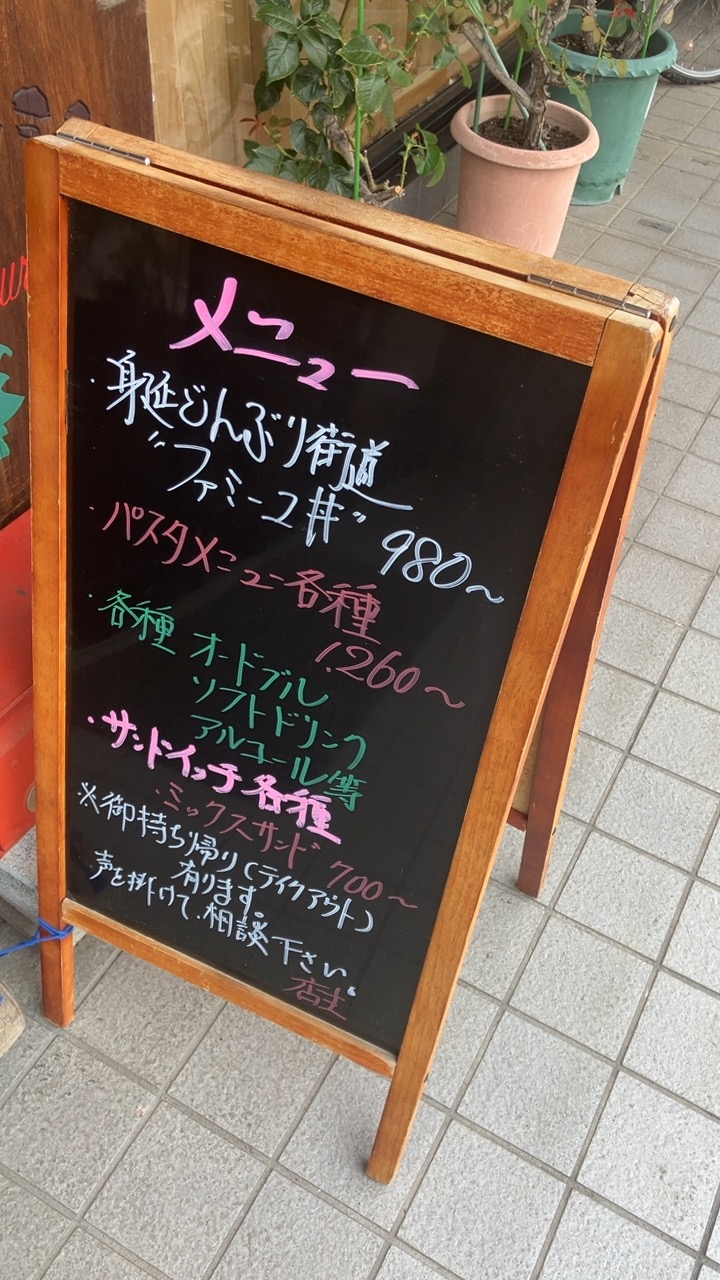 メニュー
・身延どんぶり街道
"ファミーユ丼" 980〜
・パスタメニュー各種
1.260〜
・各種 オードブル
ソフトドリンク
アルコール等
・サンドイッチ各種
・ミックスサンド 700〜
※御持ち帰り(テイクアウト)
有ります。
声を掛けて、相談下さい。
店主